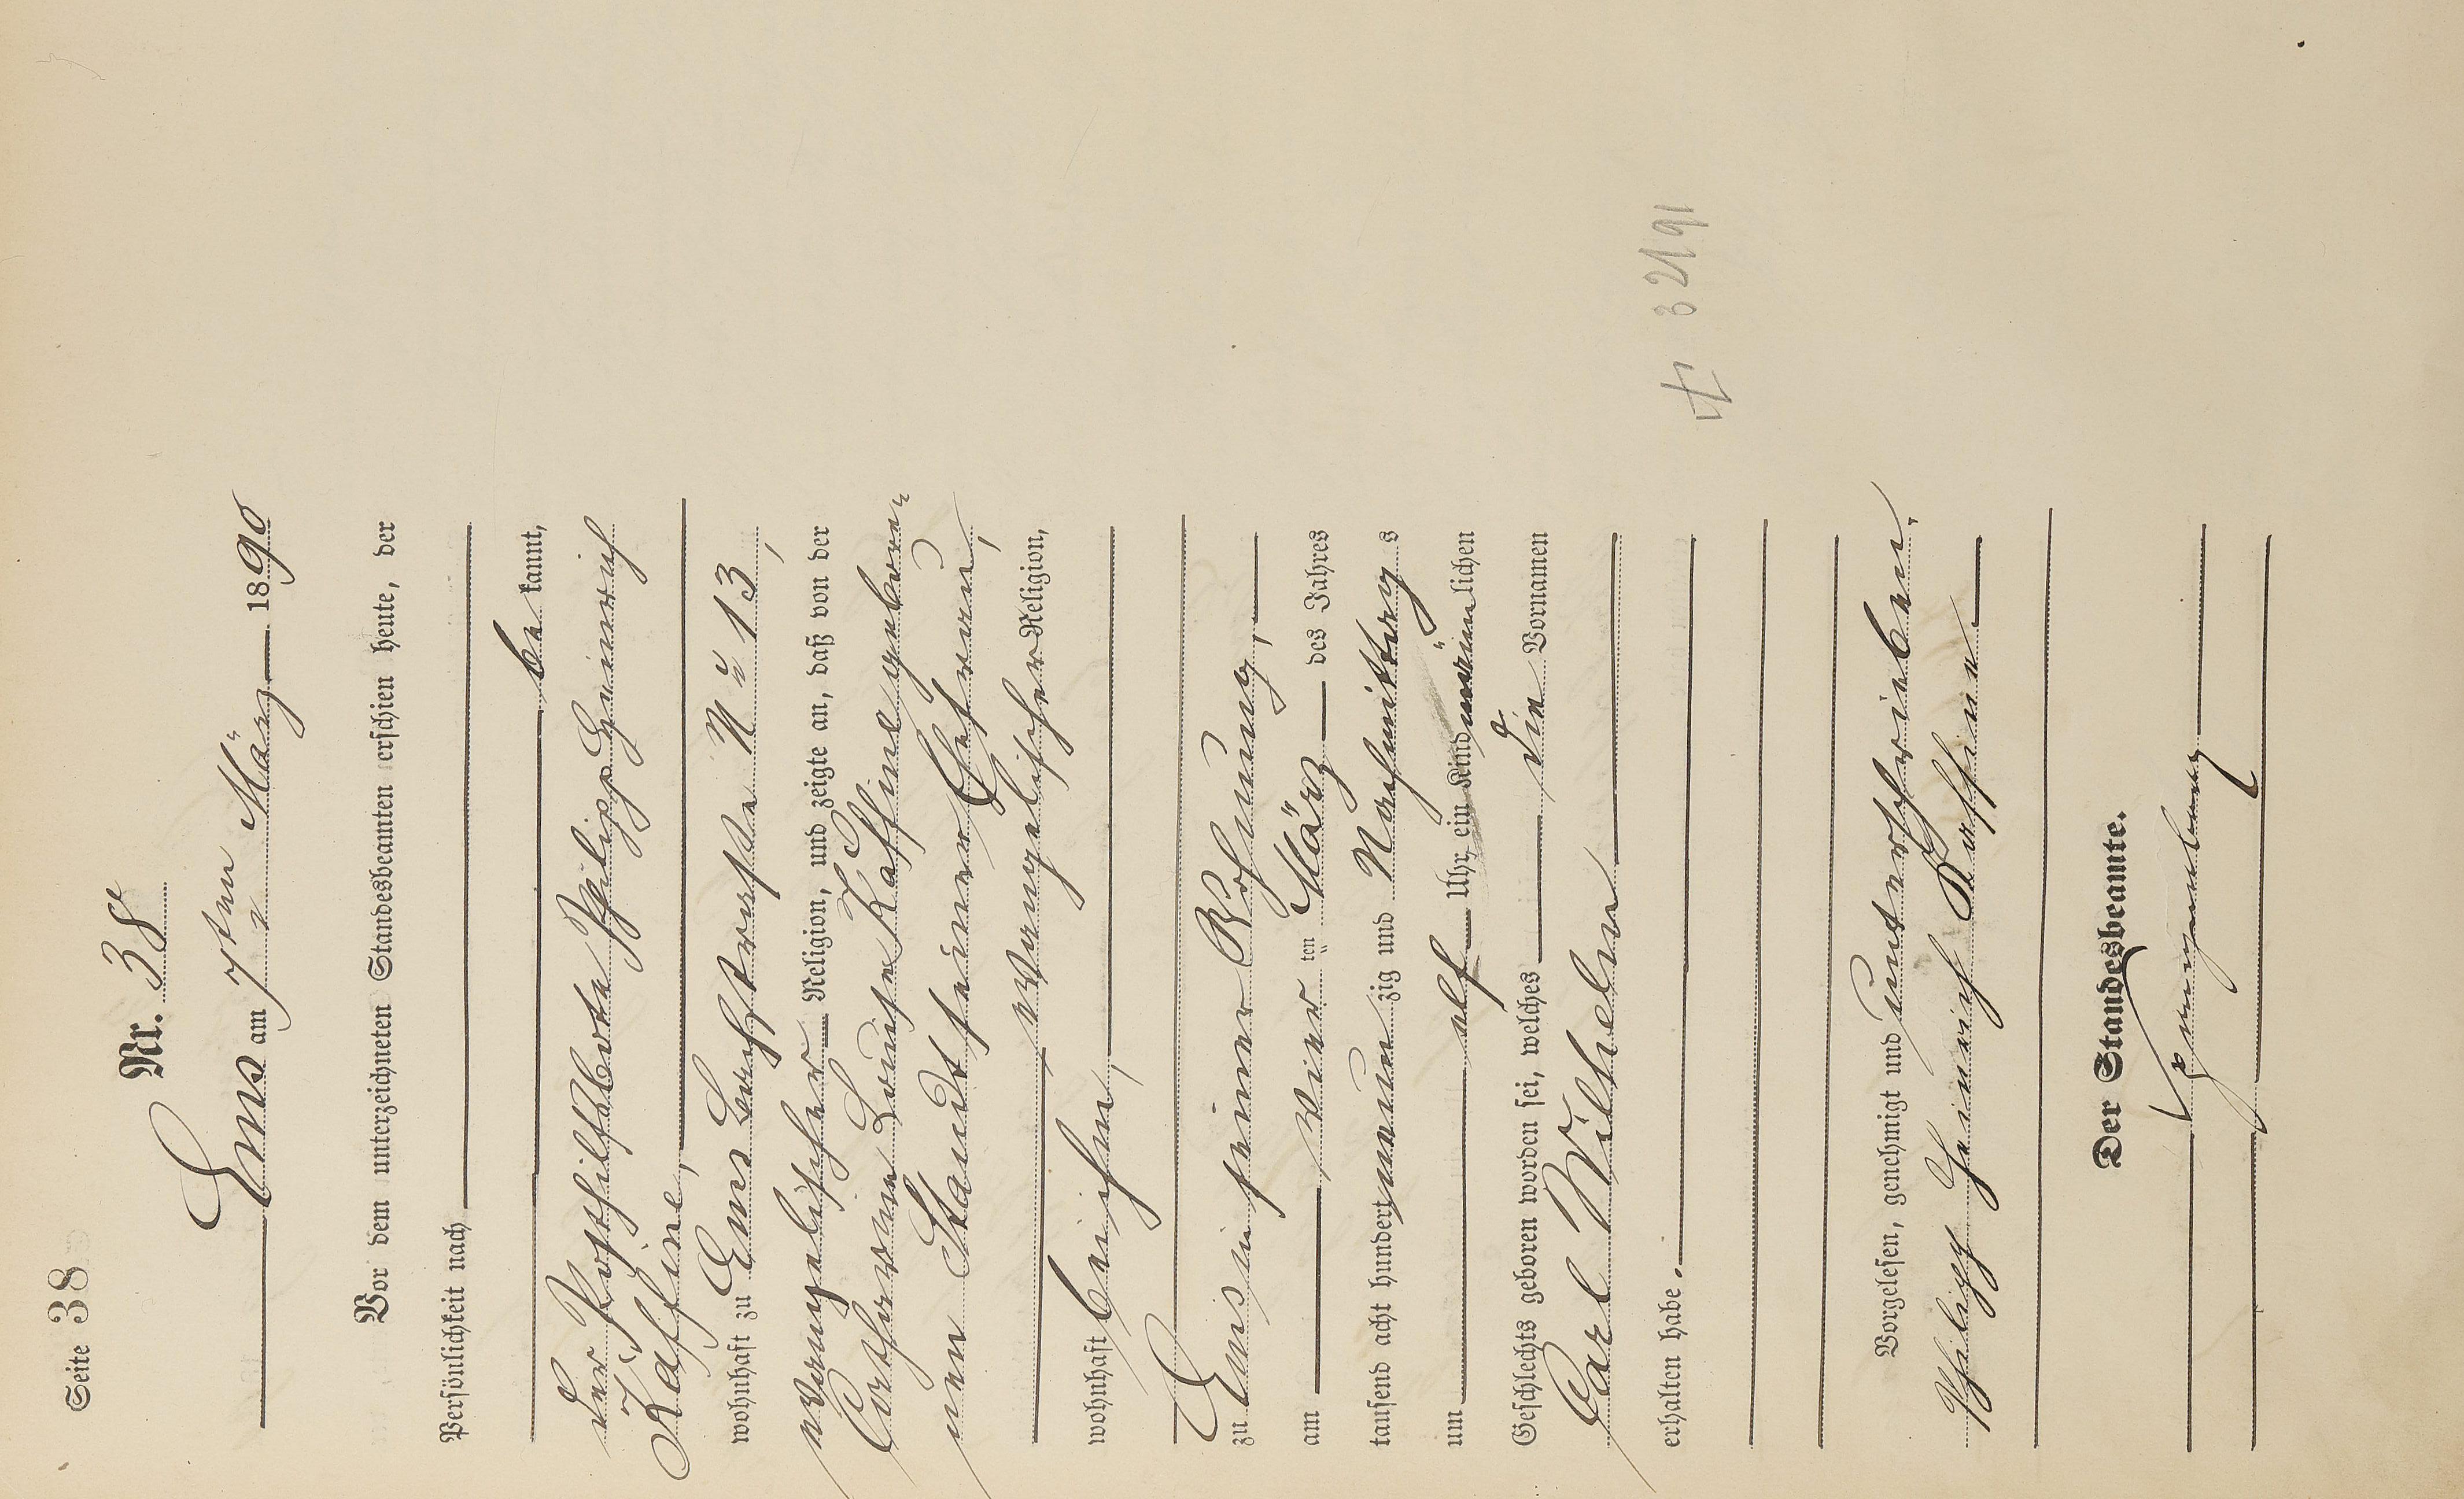 Seite 38
Nr. 38
Ems am 7ten März 1890
Vor dem unterzeichneten Standesbeamten erschien heute, der
Persönlichkeit nach
be kannt,
der Posthilfsbote Philipp Heinrich
Kaffine,
wohnhaft zu Ems Bachstraße No 13,
evangelischer Religion, und zeigte an, daß von der
Catharina Louise Kaffine gebore-
nen Staudt seiner Ehefrau,
evangelischer Religion,
wohnhaft bei ihm,
zu Ems in seiner Wohnung,
am vier ten März des Jahres
tausend acht hundert neun zig und Nachmittag s
um elf Uhr ein Kind männlichen
Geschlechts geboren worden sei, welches die Vornamen
Carl Wilhelm
erhalten habe.
† 3 2/1 91
Vorgelesen, genehmigt und unterschrieben.
Philipp Heinrich Kaffine
Der Standesbeamte.